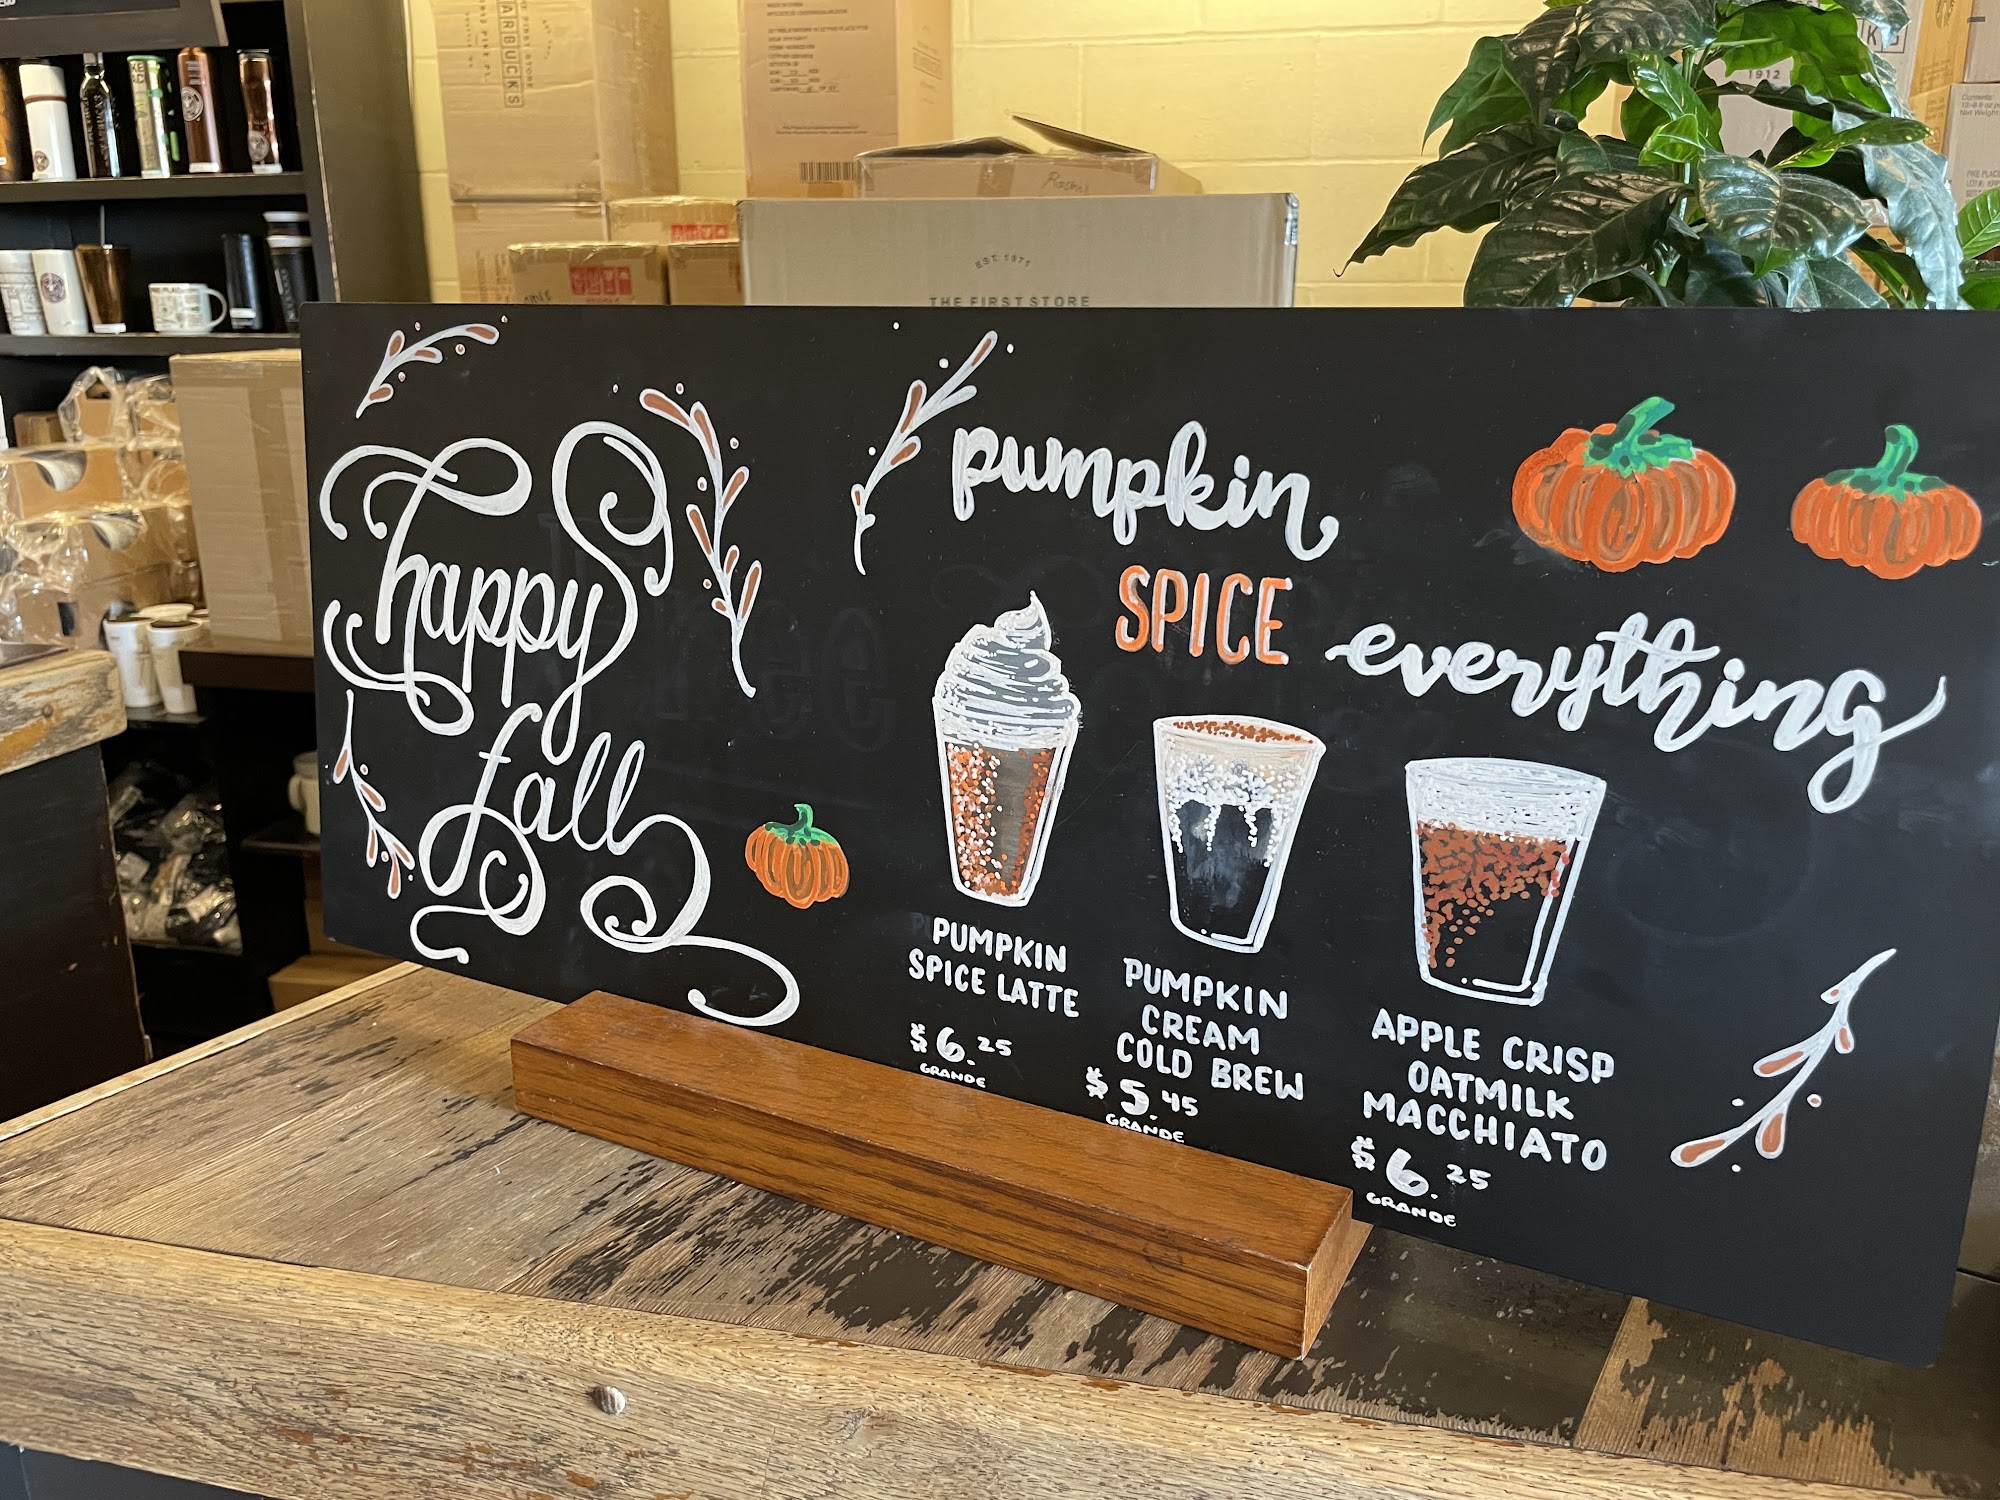 STARBUCKS
Rachel
EST. 1971
THE FIRST STORE
1912
Contents:
happy
fall
pumpkin
SPICE everything
PUMPKIN
SPICE LATTE
$6.25
GRANDE
PUMPKIN
CREAM
COLD BREW
$5.45
GRANDE
APPLE CRISP
OATMILK
MACCHIATO
$6.25
GRANDE